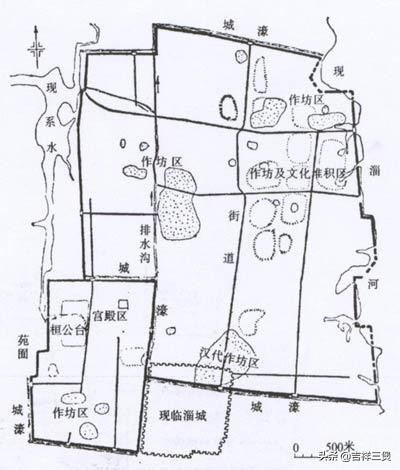 城 濠
现
系
水
现
作坊区
作坊区
作坊及文化堆积区
淄
街
道
排
水
沟
河
城
濠
宫殿区
桓公台
苑
囿
汉代作坊区
作坊区
城
濠
现临淄城
城 濠
0 500米
头条@吉祥三煲